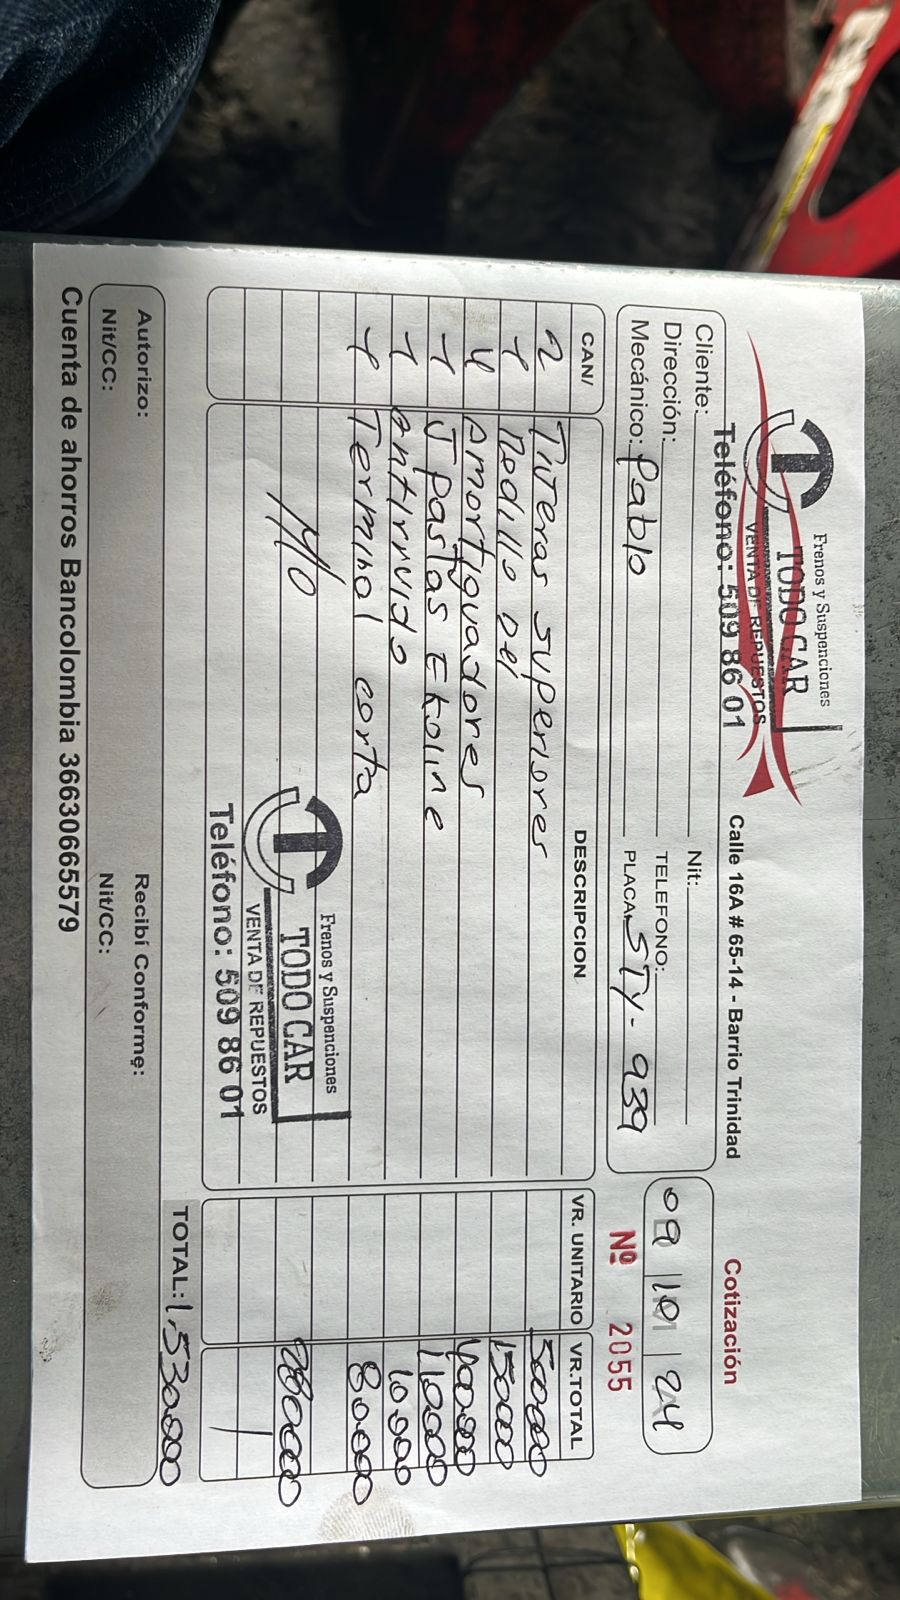 Frenos y Suspenciones
TODO CAR
VENTA DE REPUESTOS
Teléfono: 509 86 01
Calle 16A # 65-14 - Barrio Trinidad
Cotización
Cliente: Nit:
Dirección: TELEFONO:
Mecánico: Pablo PLACA STY-939
09 10 24
Nº 2055
CAN/ DESCRIPCION VR. UNITARIO VR.TOTAL
2 Titeras superiores 500000
1 Rodillo Del 150000
4 Amortiguadores 400.000
1 J pastas Ekoline 110.000
1 antirruido 10.000
1 Terminal corta 80.000
M/o 280000
Frenos y Suspenciones
TODO CAR
VENTA DE REPUESTOS
Teléfono: 509 86 01
TOTAL: 1,530.000
Autorizo: Recibí Conforme:
Nit/CC: Nit/CC:
Cuenta de ahorros Bancolombia 36630665579